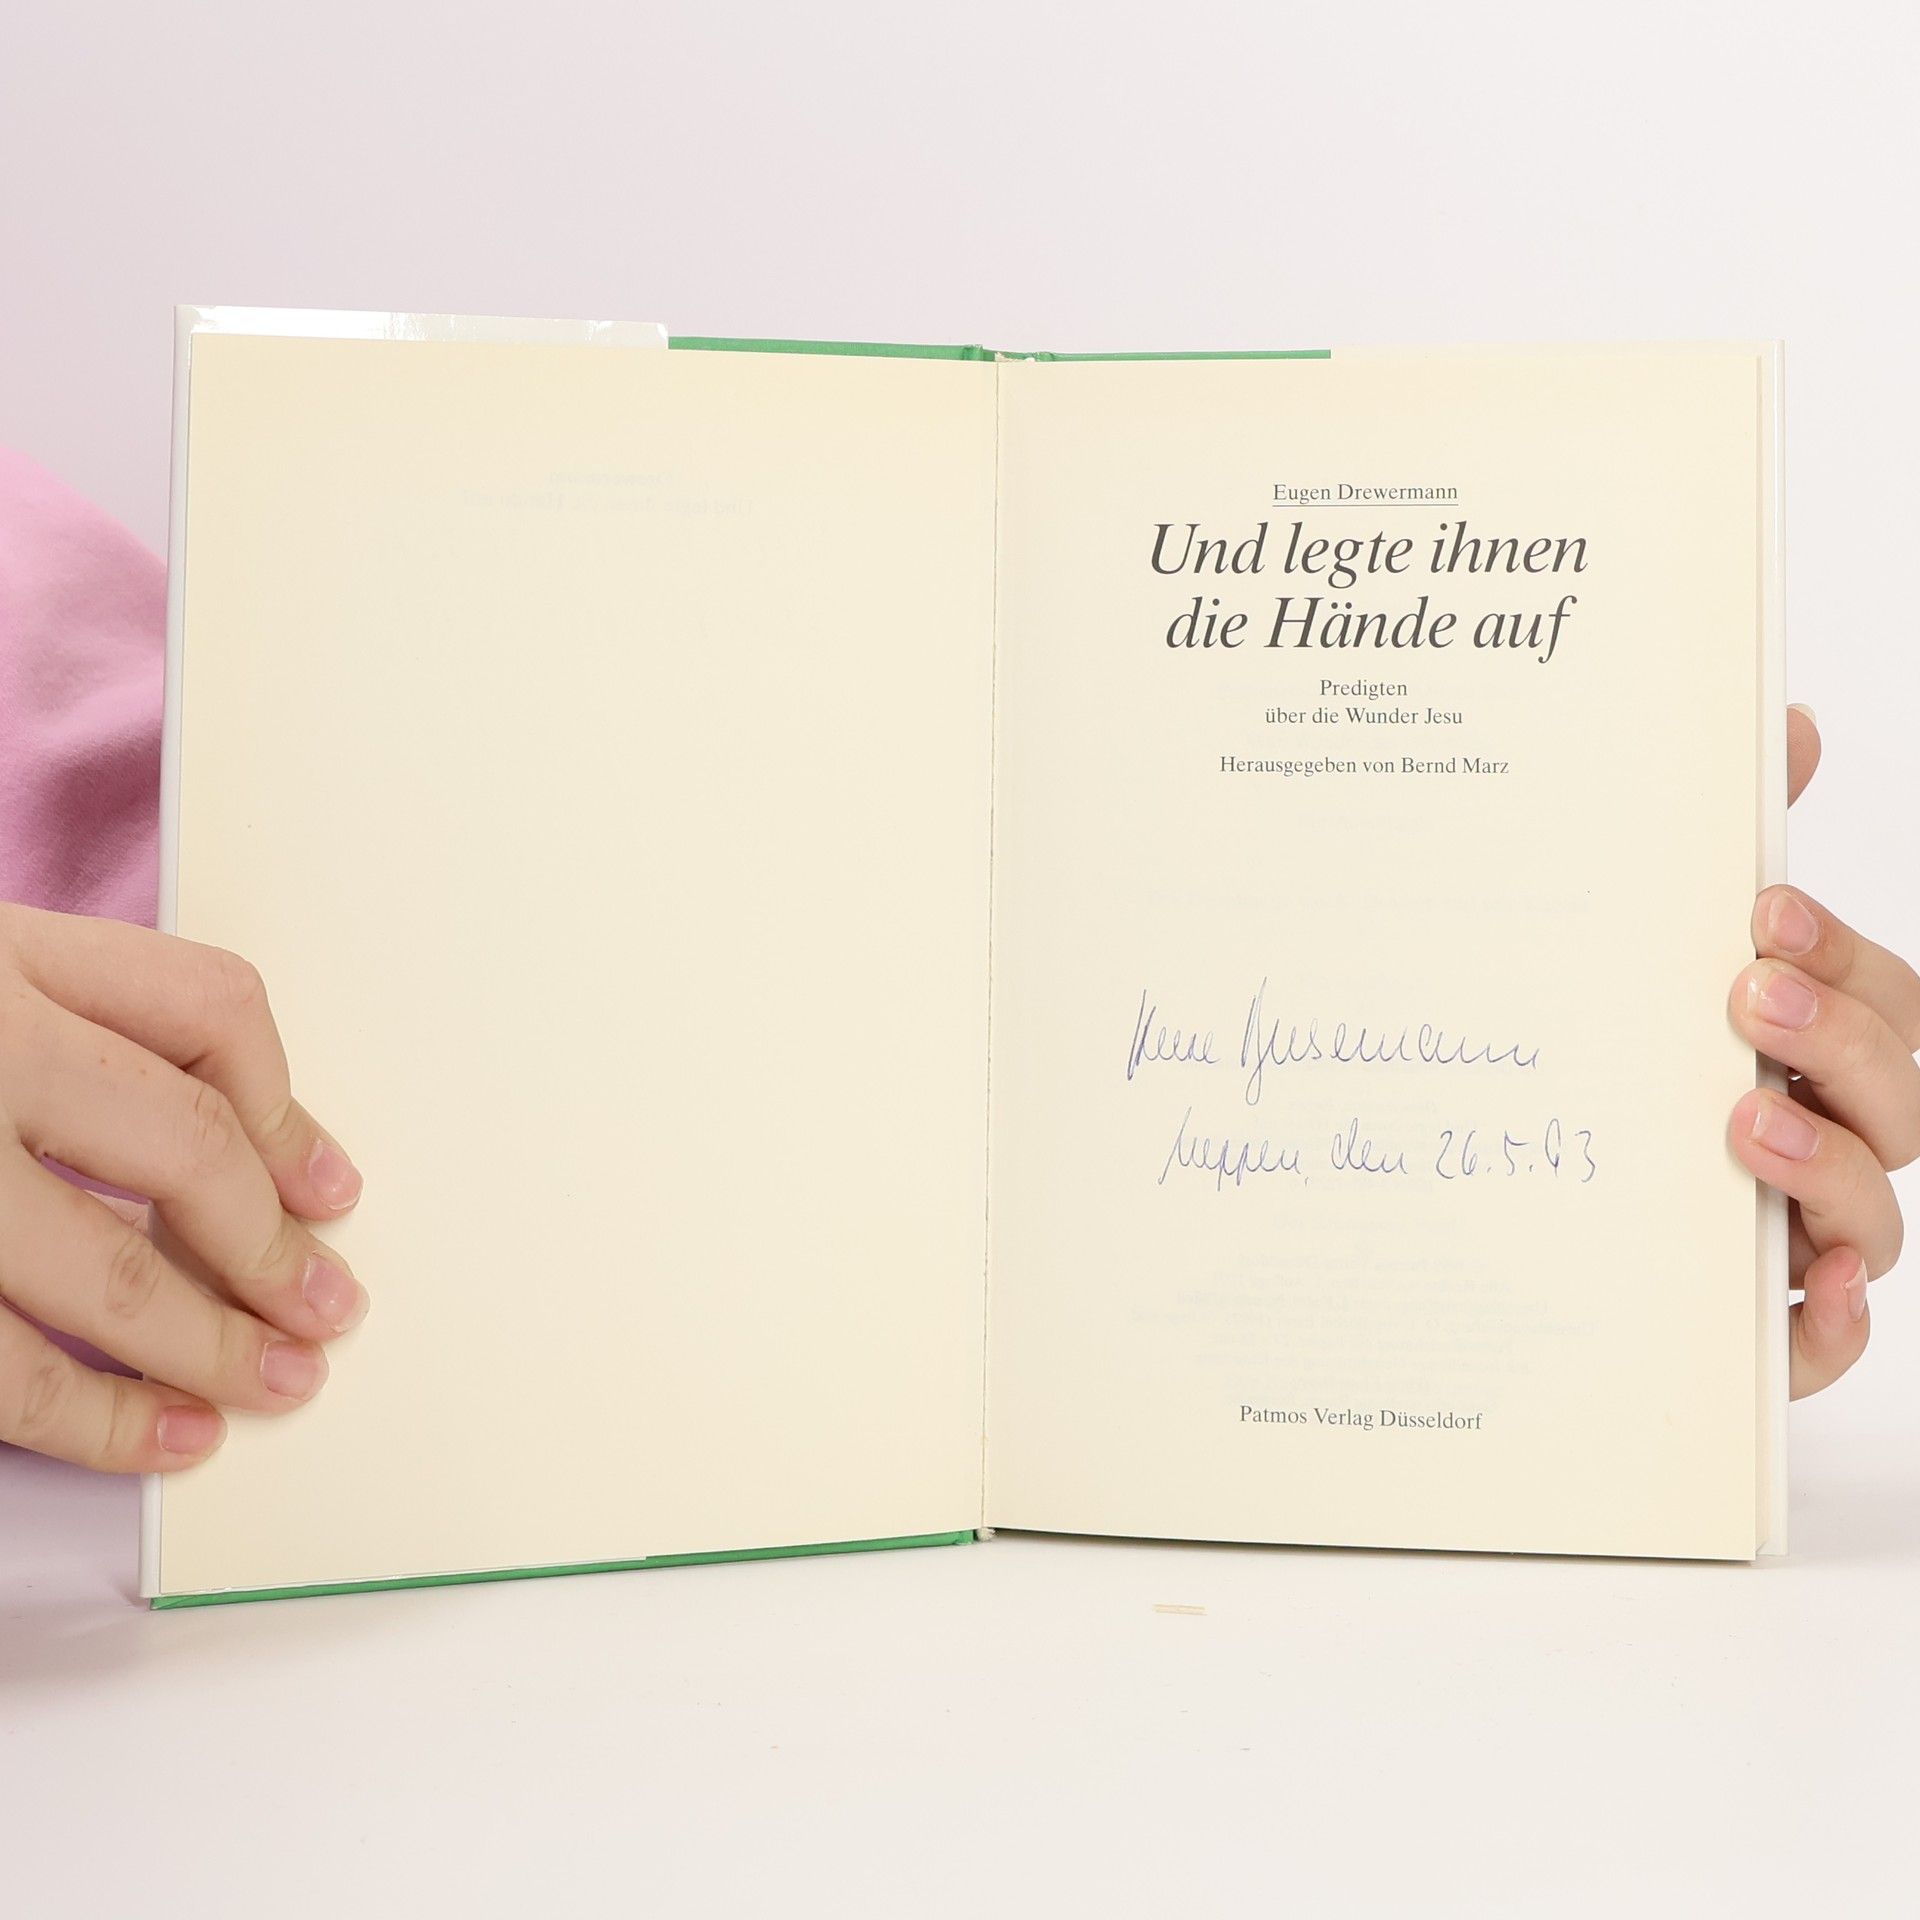 Eugen Drewermann
Und legte ihnen
die Hände auf
Predigten
über die Wunder Jesu
Herausgegeben von Bernd Marz
Busemann
Meppen, den 26.5.93
Patmos Verlag Düsseldorf